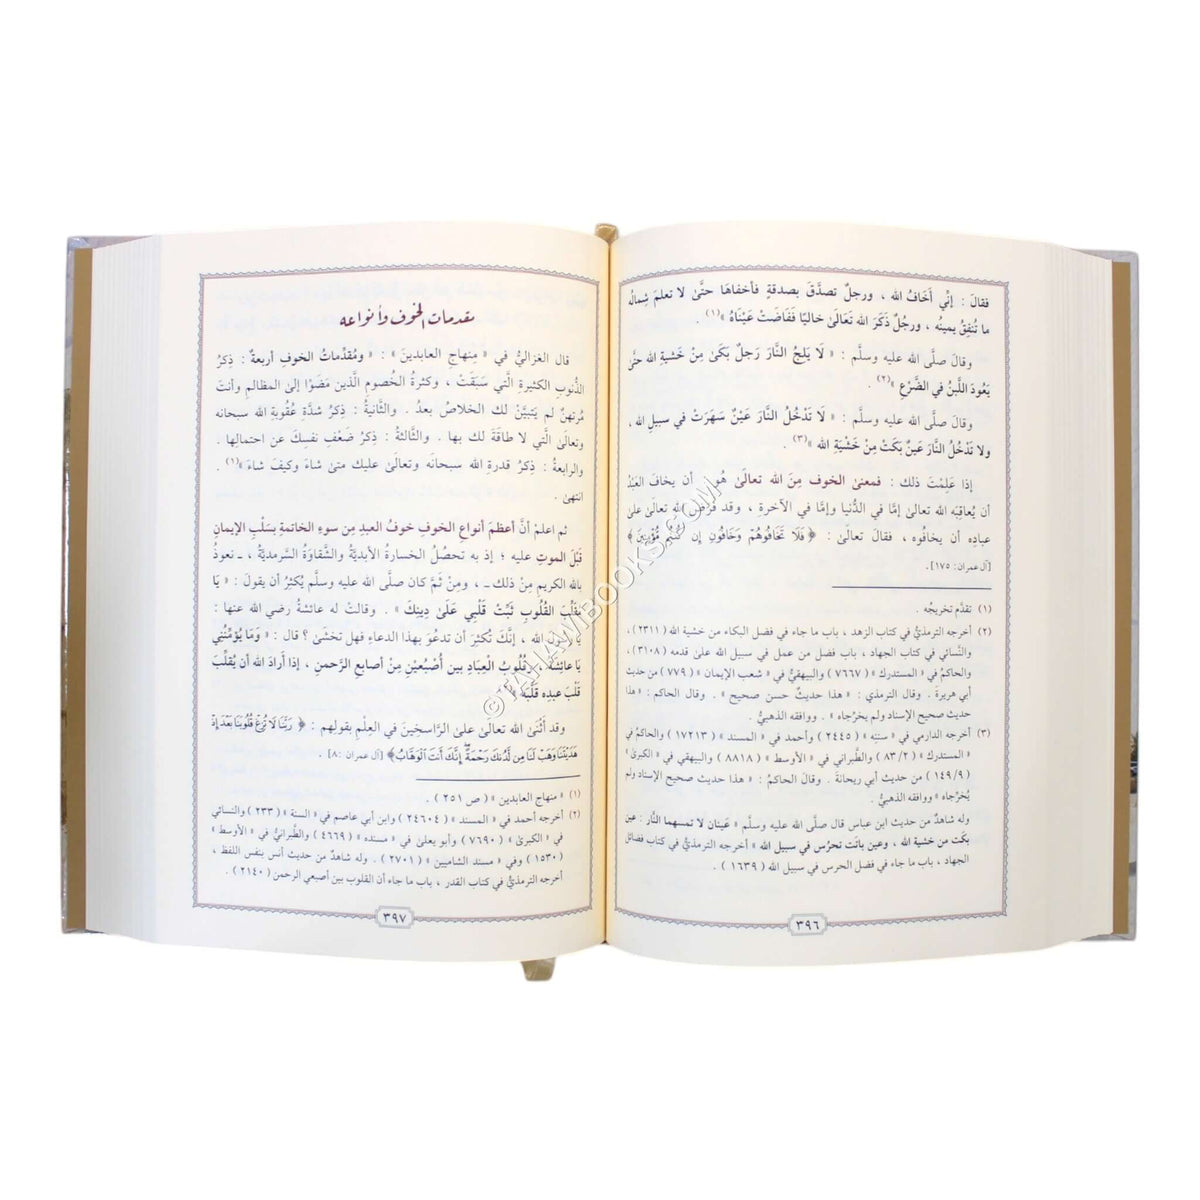 فقالَ : إنِّي أَخَافُ الله ، ورجلٌ تصدَّقَ بصدقةٍ فأخفاها حتَّىٰ لا تعلمَ شِمالُه
ما تُنفِقُ يمينُه ، ورجُلٌ ذكَرَ اللهَ تَعَالَىٰ خاليًا فَفَاضَتْ عَيْنَاهُ »(١) .
وقالَ صلَّى الله عليه وسلَّم : « لَا يَلِجُ النَّارَ رَجلٌ بكَىٰ مِنْ خَشيةِ الله حتَّىٰ
يَعُودَ اللَّبنُ في الضَّرْعِ »(٢) .
وقالَ صلَّى الله عليه وسلَّم : « لَا تَدْخُلُ النَّارَ عَيْنٌ سَهَرَتْ في سبيلِ الله ،
ولا تَدْخُلُ النَّارَ عَينٌ بكَتْ مِنْ خَشْيَةِ الله »(٣) .
إذا عَلِمْتَ ذلك : فمعنىٰ الخوف مِنَ الله تعالَىٰ هُو : أن يخافَ العَبْدُ
أن يُعاقِبَه الله تعالَىٰ إمَّا في الدُّنيا وإمَّا في الآخرةِ ، وقد فرَضَ الله تعالَىٰ علىٰ
عبادِه أن يخافُوه ، فقالَ تعالَىٰ : ﴿ فَلَا تَخَافُوهُمْ وَخَافُونِ إِن كُنتُم مُّؤْمِنِينَ ﴾
[آل عمران: ١٧٥].
(١) تقدَّم تخريجُه .
(٢) أخرجه الترمذيُّ في كتاب الزهد ، باب ما جاء في فضل البكاء من خشية الله (٢٣١١) ،
والنَّسائي في كتاب الجهاد ، باب فضل من عمل في سبيل الله علىٰ قدمه (٣١٠٨) ،
والحاكمُ في « المستدرك » (٧٦٦٧) والبيهقيُّ في « شعب الإيمان » (٧٧٩) من حديث
أبي هريرة . وقال الترمذي : « هذا حديثٌ حسن صحيح » . وقال الحاكم : « هذا
حديث صحيح الإسناد ولم يخرِّجاه » . ووافقه الذهبيُّ .
(٣) أخرجه الدارمي في « سننه » (٢٤٤٥) وأحمد في « المسند » (١٧٢١٣) والحاكمُ في
« المستدرك » (٨٣/٢) والطَّبراني في « الأوسط » (٨٨١٨) والبيهقي في « الكبرىٰ »
(١٤٩/٩) من حديث أبي ريحانة . وقال الحاكمُ : « هذا حديث صحيح الإسناد ولم
يُخرِّجاه » ووافقه الذهبيُّ .
وله شاهدٌ من حديث ابن عباس قال صلَّى الله عليه وسلَّم « عَينان لا تمسهما النَّار : عين
بكت من خشية الله ، وعين باتت تحرُس في سبيل الله » أخرجه الترمذيُّ في كتاب فضائل
الجهاد ، باب ما جاء في فضل الحرس في سبيل الله ( ١٦٣٩ ) .
٣٩٦
مقدمات الخوف وأنواعه
قال الغزاليُّ في « مِنهاج العابدين » : « ومُقدِّماتُ الخوفِ أربعةٌ : ذِكرُ
الذُّنوبِ الكثيرة الَّتي سَبَقَتْ ، وكثرةُ الخُصومِ الَّذين مَضَوْا إلىٰ المظالمِ وأنتَ
مُرتهنٌ لم يَتبيَّنْ لك الخلاصُ بعدُ . والثَّانيةُ : ذِكرُ شدَّةِ عُقُوبةِ الله سبحانه
وتعالىٰ الَّتي لا طاقَةَ لك بها . والثَّالثةُ : ذِكرُ ضَعْفِ نفسِكَ عن احتمالِها .
والرابعةُ : ذِكرُ قدرةِ الله سبحانَه وتعالَىٰ عليك متىٰ شاءَ وكيفَ شاءَ»(١) .
انتهىٰ .
ثم اعلمْ أنَّ أعظمَ أنواعِ الخوفِ خوفُ العبدِ مِن سوءِ الخاتمةِ بسَلْبِ الإيمانِ
قَبْلَ الموتِ عليه ؛ إذ به تحصُلُ الخسارةُ الأبديَّةُ والشَّقاوةُ السَّرمديَّةُ ، ـ نعوذُ
بالله الكريمِ مِنْ ذلك ـ ، ومِنْ ثَمَّ كان صلَّى الله عليه وسلَّم يُكثِرُ أن يقولَ : « يَا
مُقلِّبَ القُلُوبِ ثَبِّتْ قَلْبِي علَىٰ دِينِكَ » . وقالتْ له عائشةُ رضي الله عنها :
يا رسولَ الله ، إنَّكَ تُكثِرُ أن تدعُوَ بهذا الدعاءِ فهل تخشَىٰ ؟ قال : « وَمَا يُؤمِّنُنِي
يَا عائشةُ ، وقُلُوبُ العِبَادِ بين أُصْبُعَيْنِ مِنْ أصابعِ الرَّحمنِ ، إذا أرادَ الله أن يُقلِّبَ
قَلْبَ عبدِه قلَّبَهُ »
وقد أَثْنَىٰ الله تعالَىٰ علىٰ الرَّاسخينَ في العِلْمِ بقولِهم : ﴿ رَبَّنَا لَا تُزِغْ قُلُوبَنَا بَعْدَ إِذْ
هَدَيْتَنَا وَهَبْ لَنَا مِن لَّدُنكَ رَحْمَةً إِنَّكَ أَنتَ الْوَهَّابُ ﴾ [آل عمران :٨] .
(١) « منهاج العابدين » ( ص ٢٥١ ) .
(٢) أخرجه أحمد في « المسند » ( ٢٤٦٠٤ ) وابن أبي عاصم في « السنة » ( ٢٣٣ ) والنسائي
في « الكبرىٰ » (٧٦٩٠) وأبو يعلىٰ في « مسنده » ( ٤٦٦٩ ) والطَّبرانيُّ في « الأوسط »
(١٥٣٠) وفي « مسند الشاميين » (٢٧٠١) . وله شاهدٌ من حديث أنس بنفس اللفظ ،
أخرجه الترمذيُّ في كتاب القدر ، باب ما جاء أن القلوب بين أصبعي الرحمن ( ٢١٤٠ ) .
٣٩٧
©TAHAWIBOOKS.COM